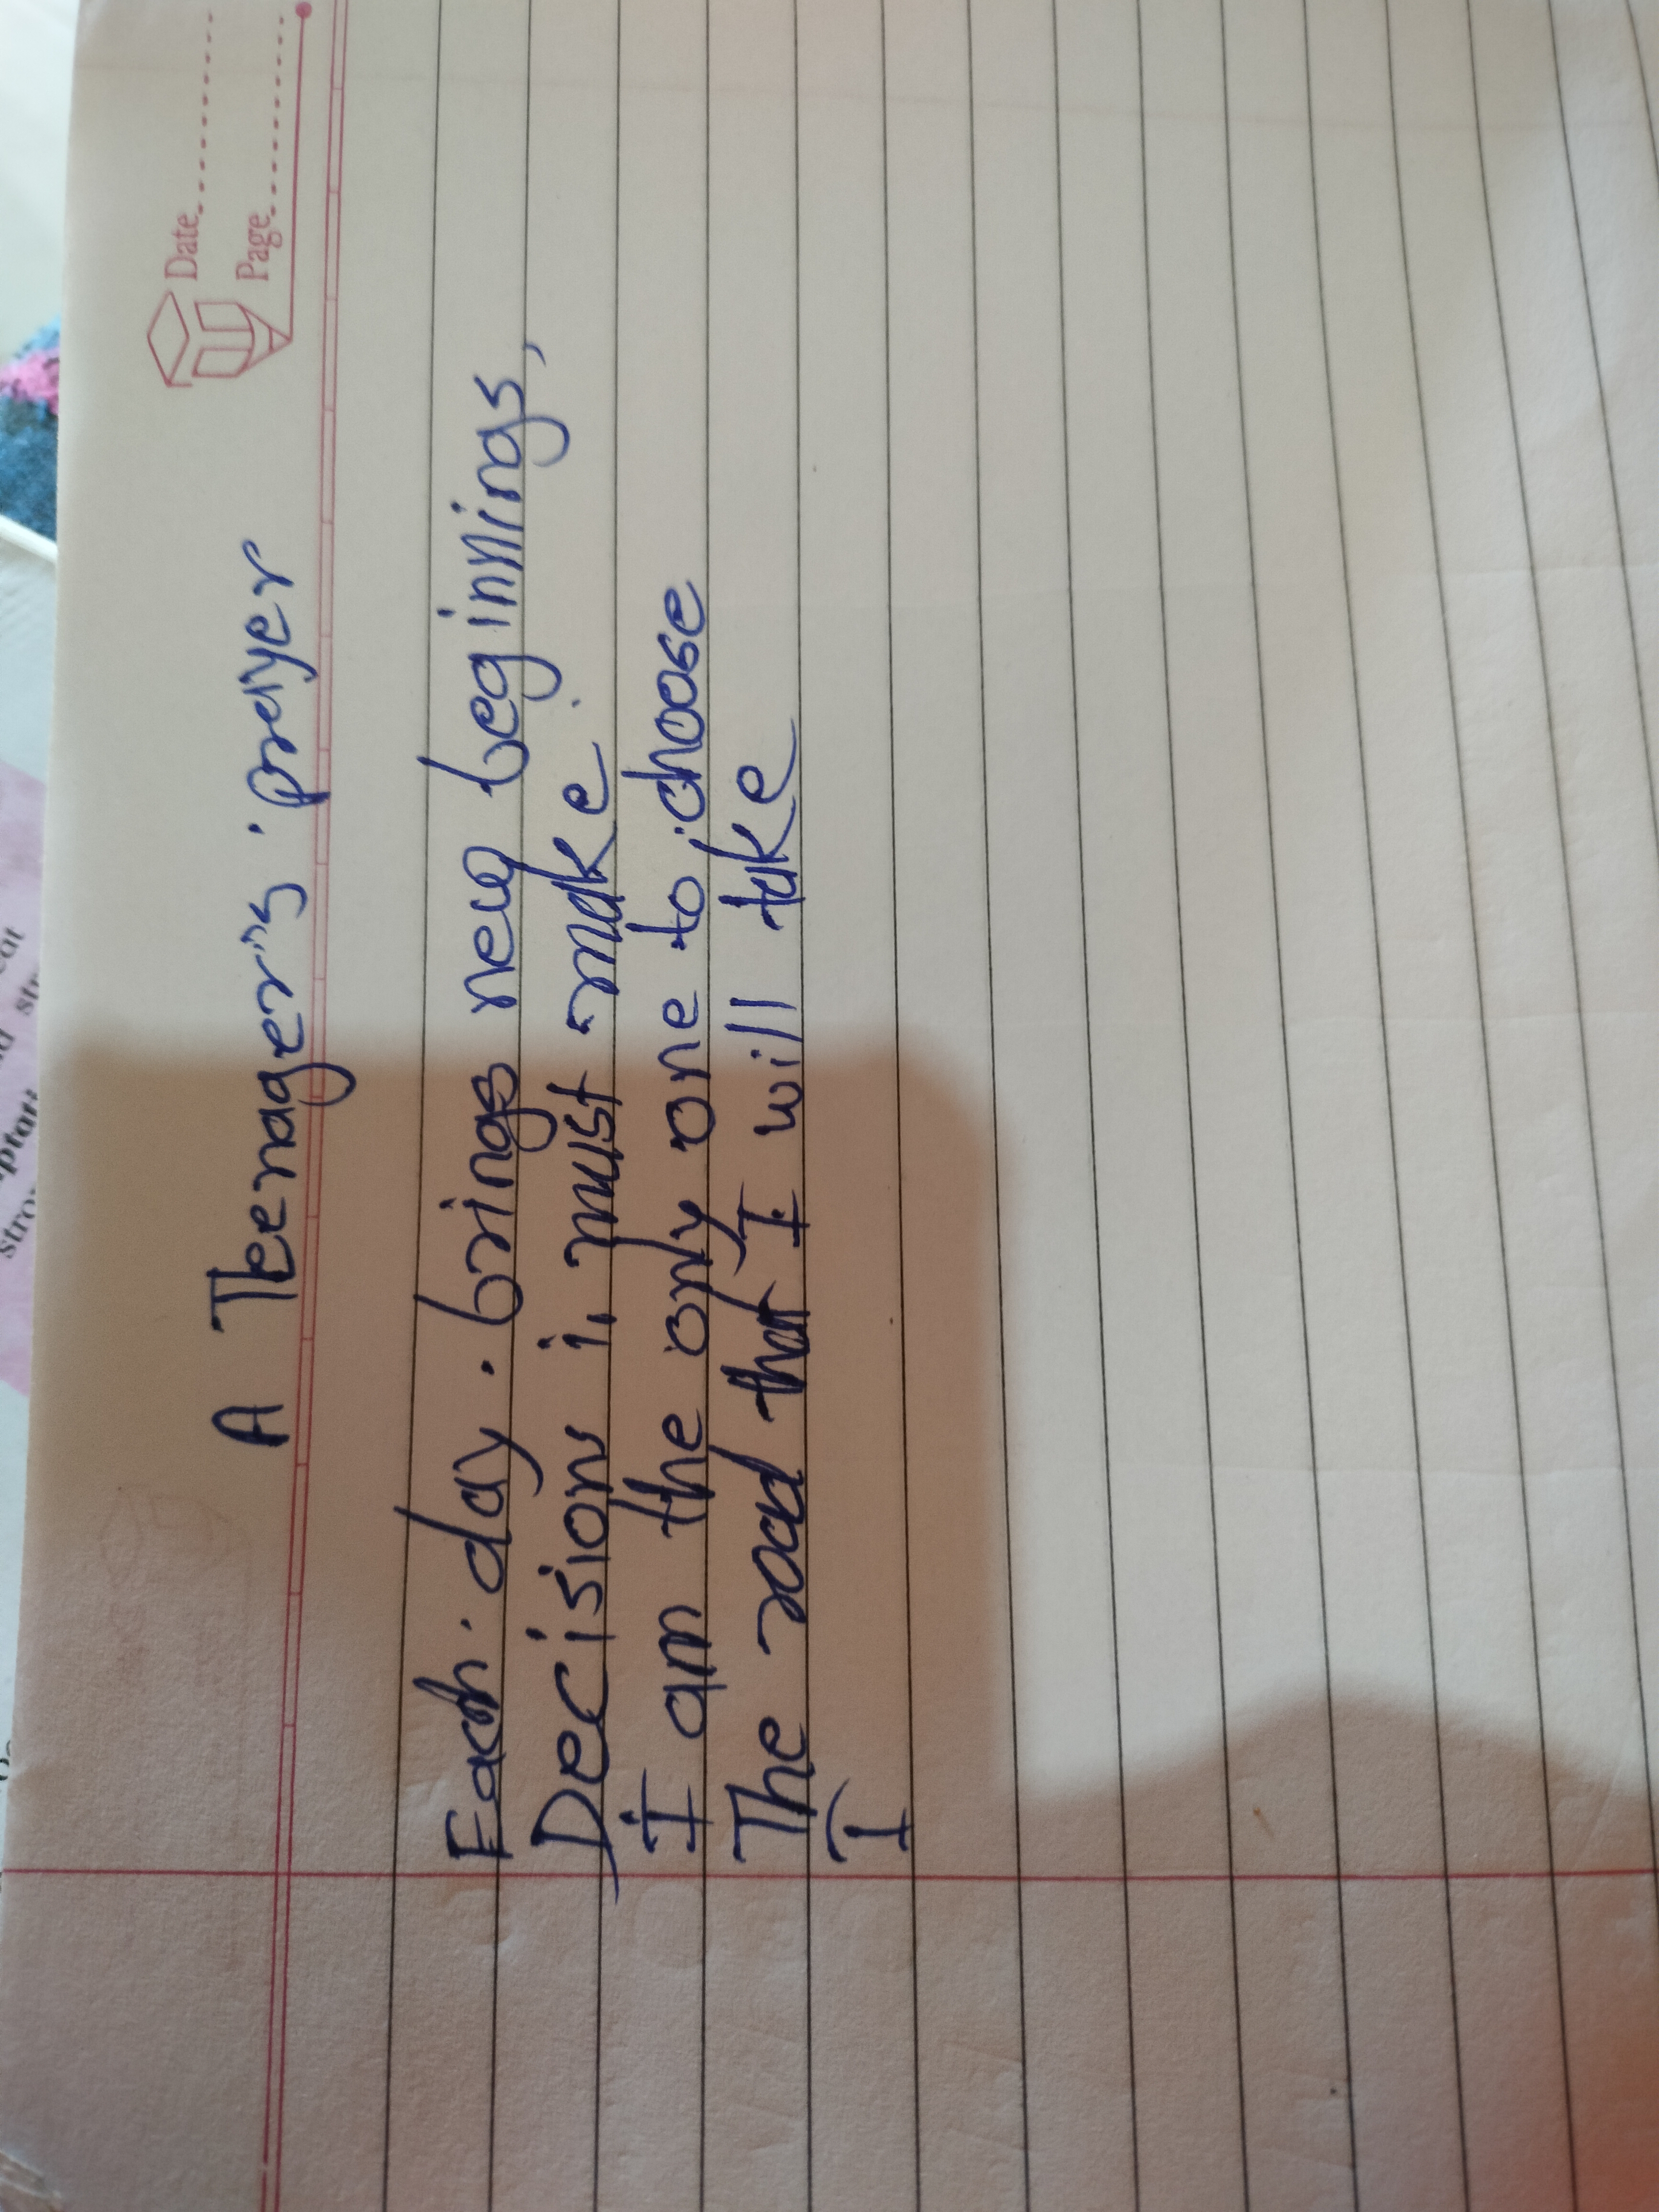 Date
Page
A Teenager's prayer
Each day brings new beginnings,
Decisions i must make
I am the only one to choose
The road that I will take
I